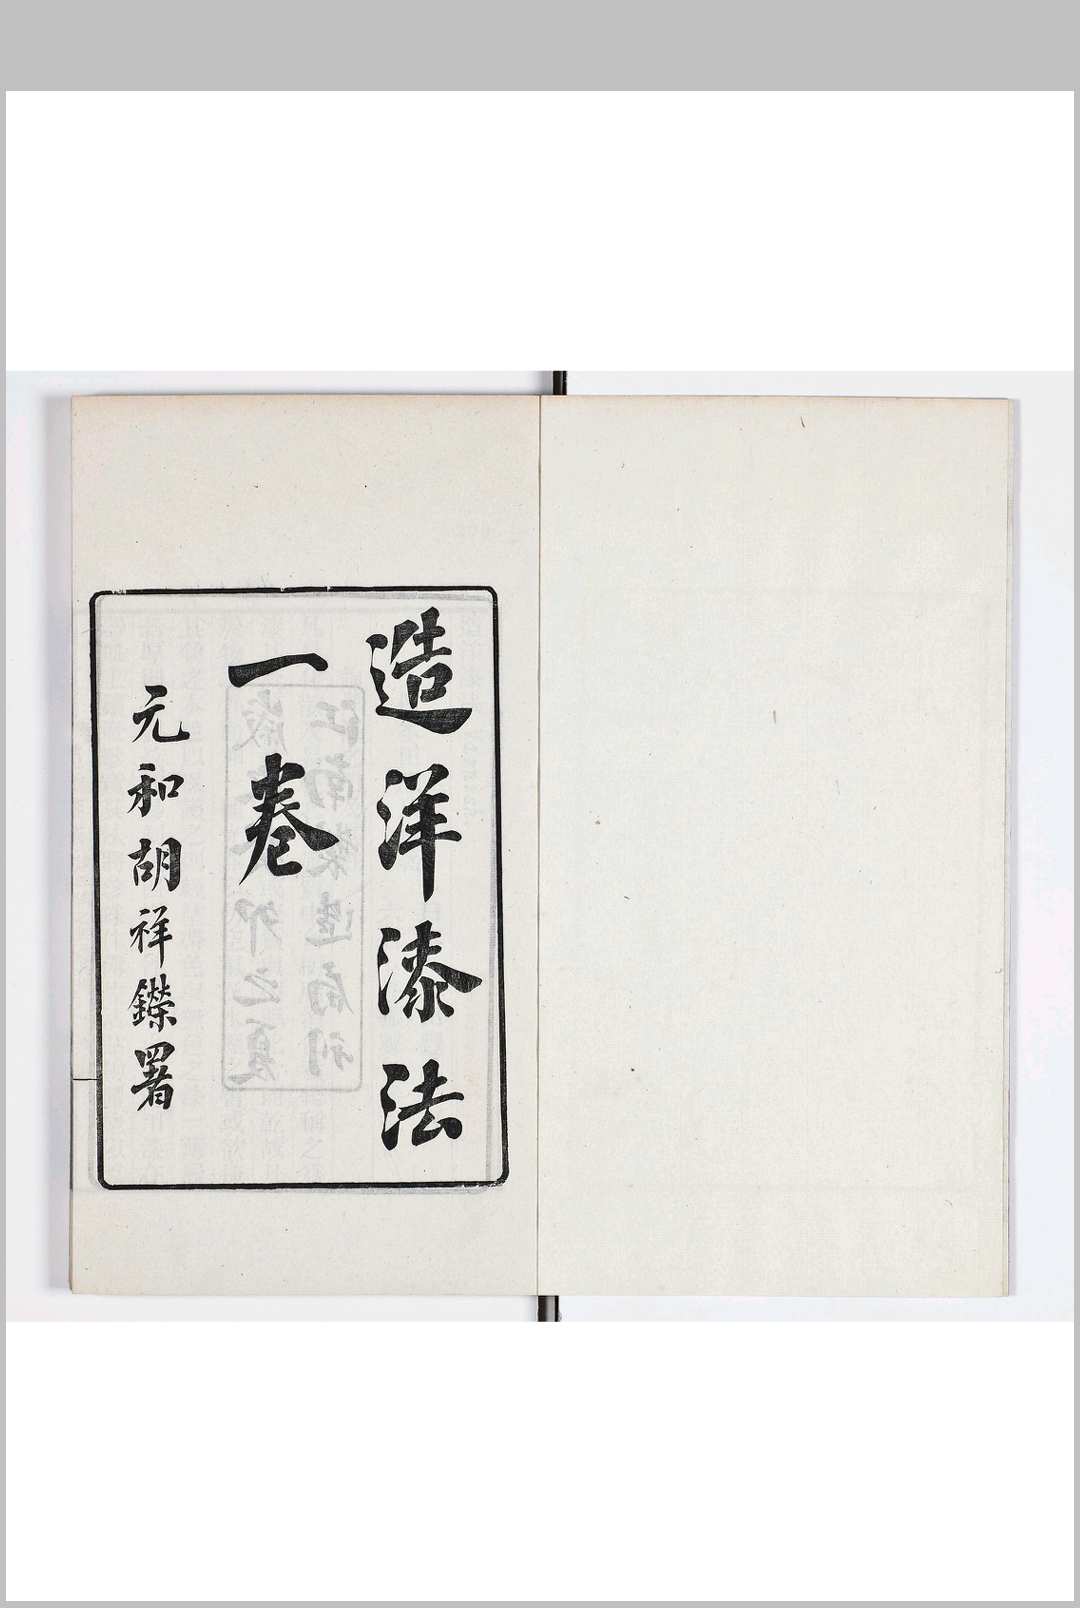 造洋漆法
一卷
元和胡祥鑅署